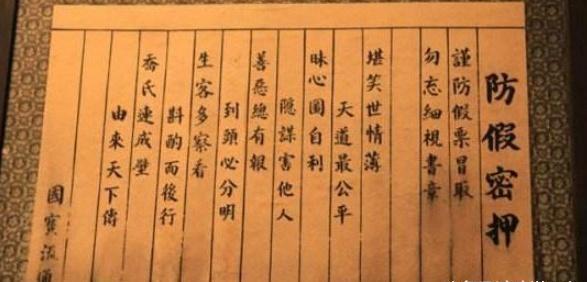 防假密押
謹防假票冒取
勿忘細視書章
堪笑世情薄
天道最公平
昧心圖自利
陰謀害他人
善惡總有報
到頭必分明
生客多察看
斟酌而後行
喬氏連成璧
由來天下傳
國寶流通